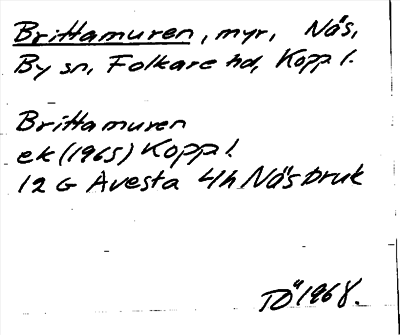 Brittamuren, myr, Näs,
By sn, Folkare hd, Kopp l.
Brittamuren
ek (1965) Kopp l
12 G Avesta 4h Näs bruk
TÖ 1968.